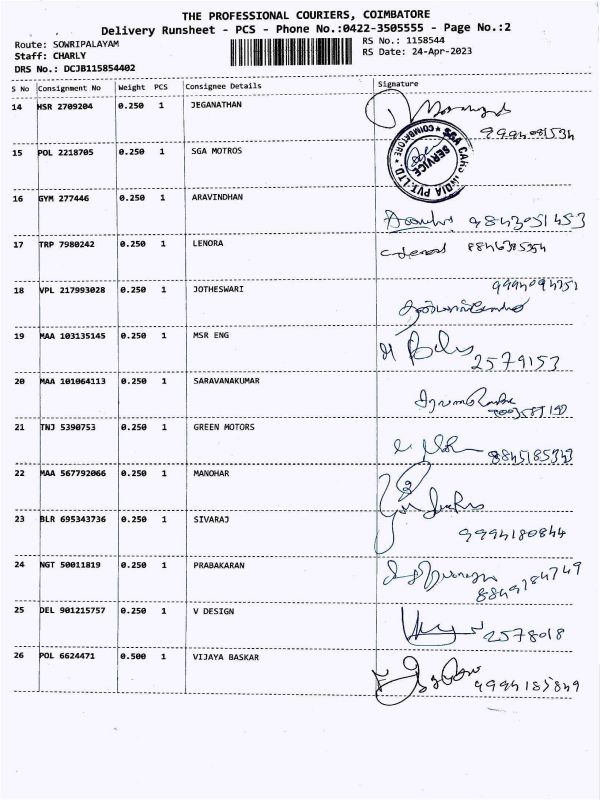 THE PROFESSIONAL COURIERS, COIMBATORE
Delivery Runsheet - PCS - Phone No.:0422-3505555 - Page No.:2
Route: SOWRIPALAYAM
RS No.: 1158544
Staff: CHARLY
RS Date: 24-Apr-2023
DRS No.: DCJB115854402
S No Consignment No Weight PCS Consignee Details Signature
14 HSR 2709204 0.250 1 JEGANATHAN
SGA CARS INDIA PVT. LTD. * COIMBATORE *
SERVICE
15 POL 2218705 0.250 1 SGA MOTROS
16 GYM 277446 0.250 1 ARAVINDHAN
9843051453
17 TRP 7980242 0.250 1 LENORA
18 VPL 217993028 0.250 1 JOTHESWARI
19 MAA 103135145 0.250 1 MSR ENG
2579153
20 MAA 101064113 0.250 1 SARAVANAKUMAR
21 TNJ 5390753 0.250 1 GREEN MOTORS
22 MAA 567792066 0.250 1 MANOHAR
23 BLR 695343736 0.250 1 SIVARAJ
9994180844
24 NGT 50011819 0.250 1 PRABAKARAN
25 DEL 901215757 0.250 1 V DESIGN
2578018
26 POL 6624471 0.500 1 VIJAYA BASKAR
9994185849